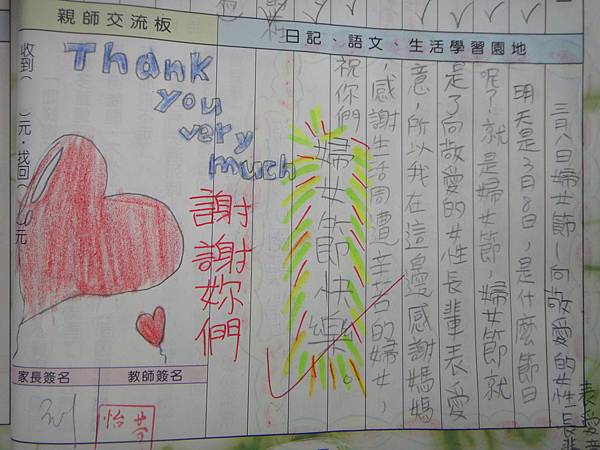 親師交流板
日記、語文、生活學習園地
三月八日婦女節—向敬愛的女性長輩
表愛意
明天是3月8日,是什麼節日
呢?就是婦女節,婦女節就
是了向敬愛的女性長輩表愛
意,所以我在這邊感謝媽媽
,感謝生活周遭辛苦的婦女,
祝你們
婦女節快樂。
Thank
you
very
much
謝謝妳們
收到( )元,找回( )元
家長簽名
教師簽名